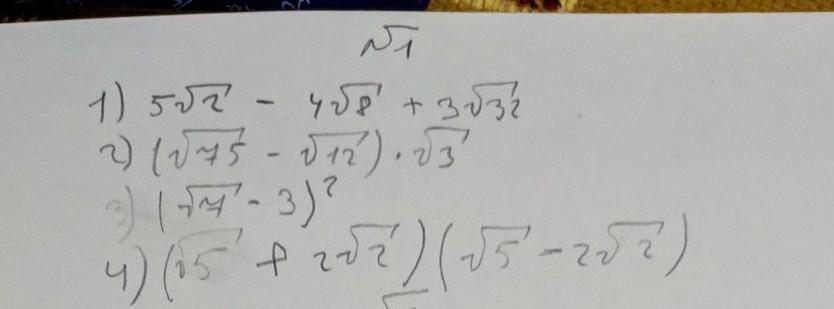 №1
1) 5√2 - 4√8 + 3√32
2) (√75 - √12) · √3
3) (√7 - 3)²
4) (√5 + 2√2)(√5 - 2√2)